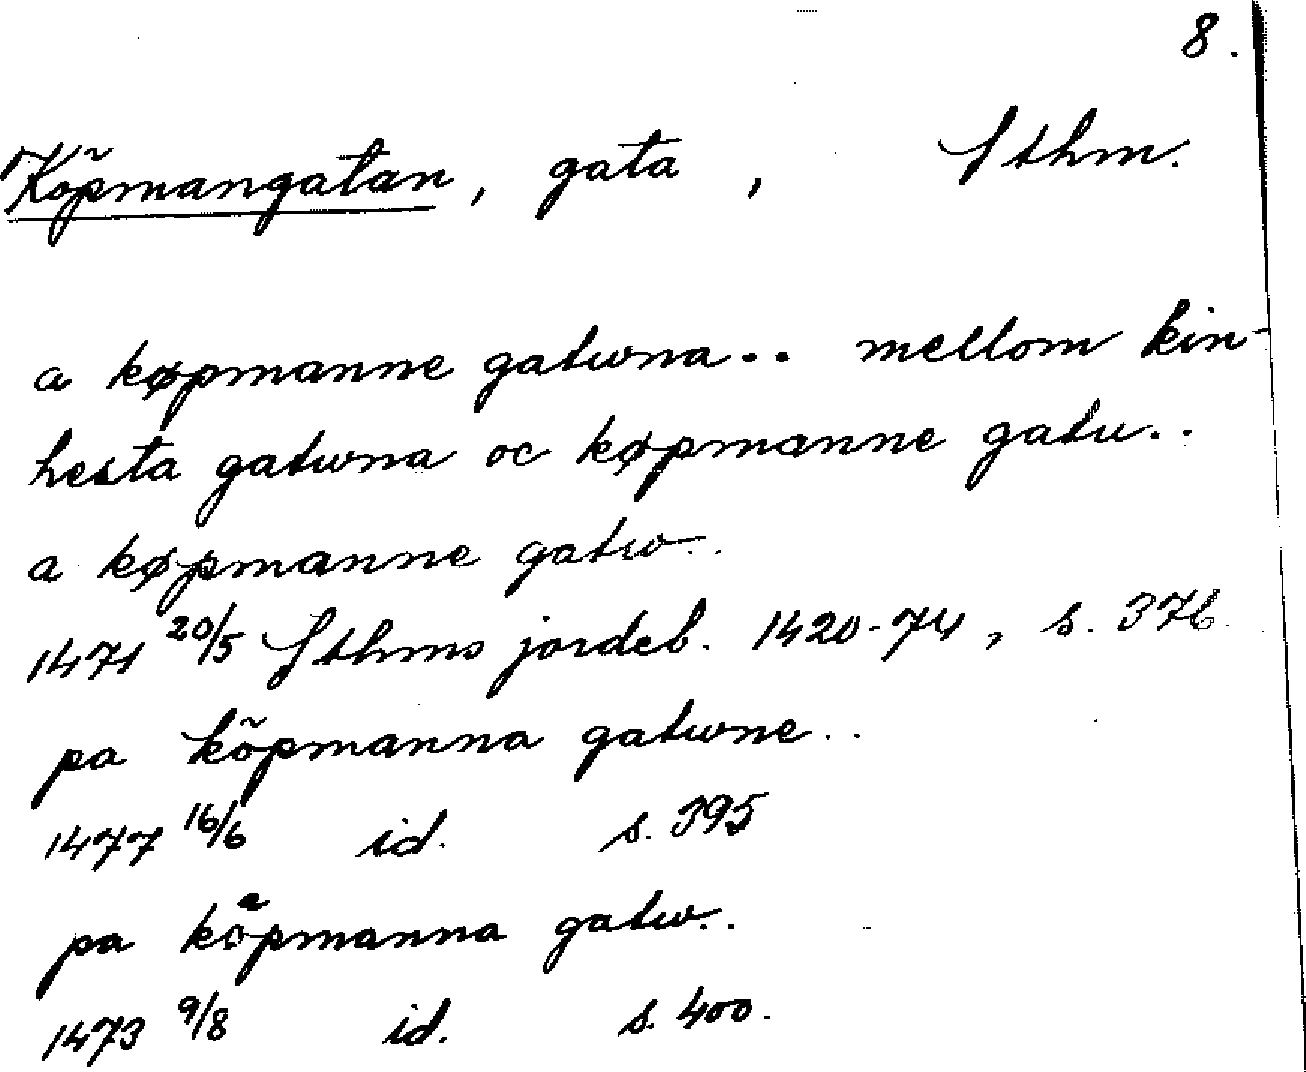 8.
Köpmangatan, gata, Sthm.
a køpmanne gatwna.. mellom kin-
hesta gatwna oc køpmanne gatu..
a køpmanne gatw..
1471 20/5 Sthms jordeb. 1420-74, s. 376.
pa köpmanna gatwne..
1477 16/6 id. s. 395
pa köpmanna gatw..
1473 9/8 id. s. 400.